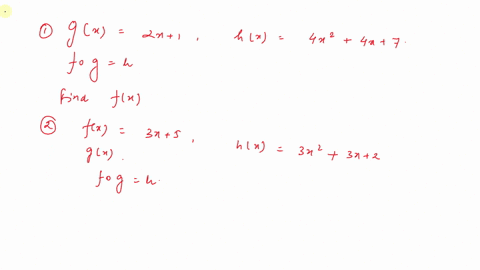 ① g(x) = 2x+1, h(x) = 4x² + 4x + 7.
fog = h
find f(x)
② f(x) = 3x+5, h(x) = 3x² + 3x + 2
g(x).
fog = h.